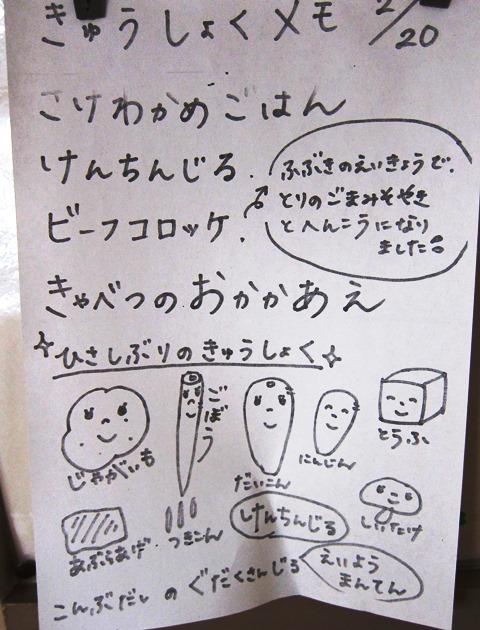 きゅうしょくメモ 2/20
さけわかめごはん
けんちんじる.
ビーフコロッケ.
ふぶきのえいきょうで.
とりのごまみそやき
とへんこうになり
ました
きゃべつのおかかあえ
ひさしぶりのきゅうしょく
じゃがいも
ごぼう
だいこん
にんじん
とうふ
あぶらあげ.
つきこん
けんちんじる
しいたけ
こんぶだしのぐだくさんじる
えいよう
まんてん